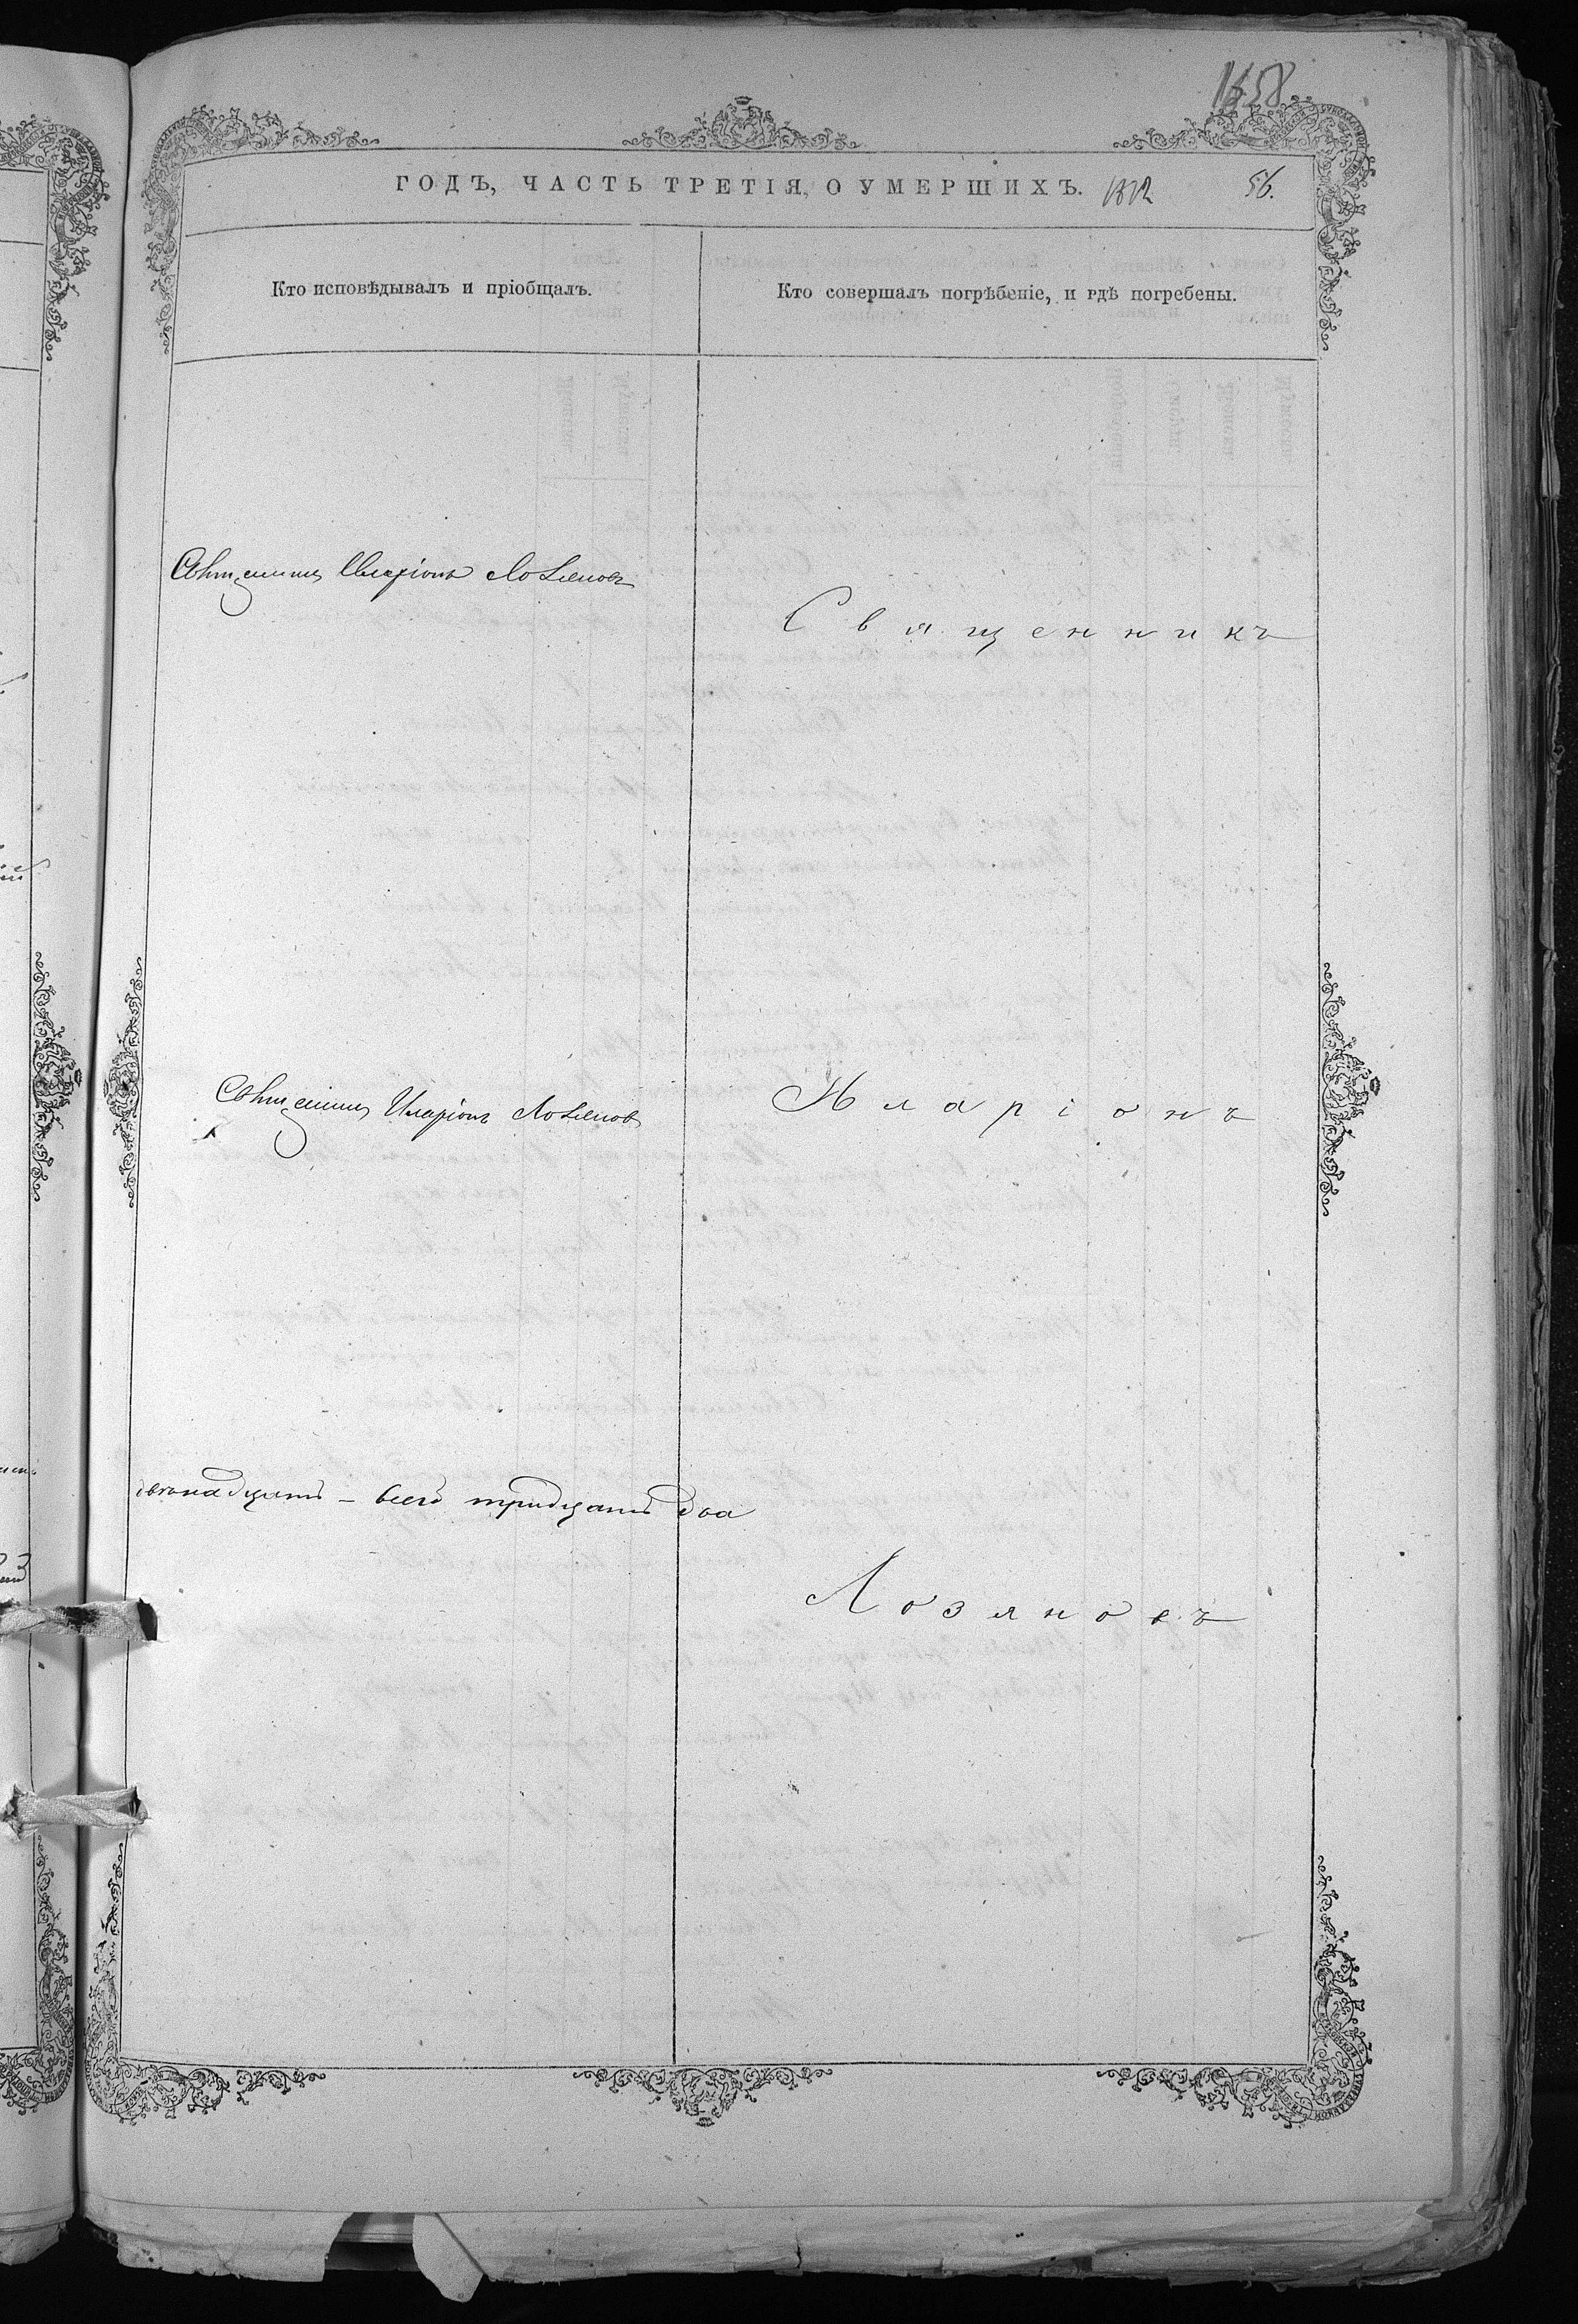 1658
ГОДЪ, ЧАСТЬ ТРЕТІЯ, О УМЕРШИХЪ.
56.
Кто исповѣдывалъ и пріобщалъ.
Кто совершалъ погрѣбеніе, и гдѣ погребены.
Иларіонъ Лозяновъ
Священникъ
Иларіонъ Лозяновъ
Иларіонъ
двѣнадцать – всего тридцать два
Лозяновъ